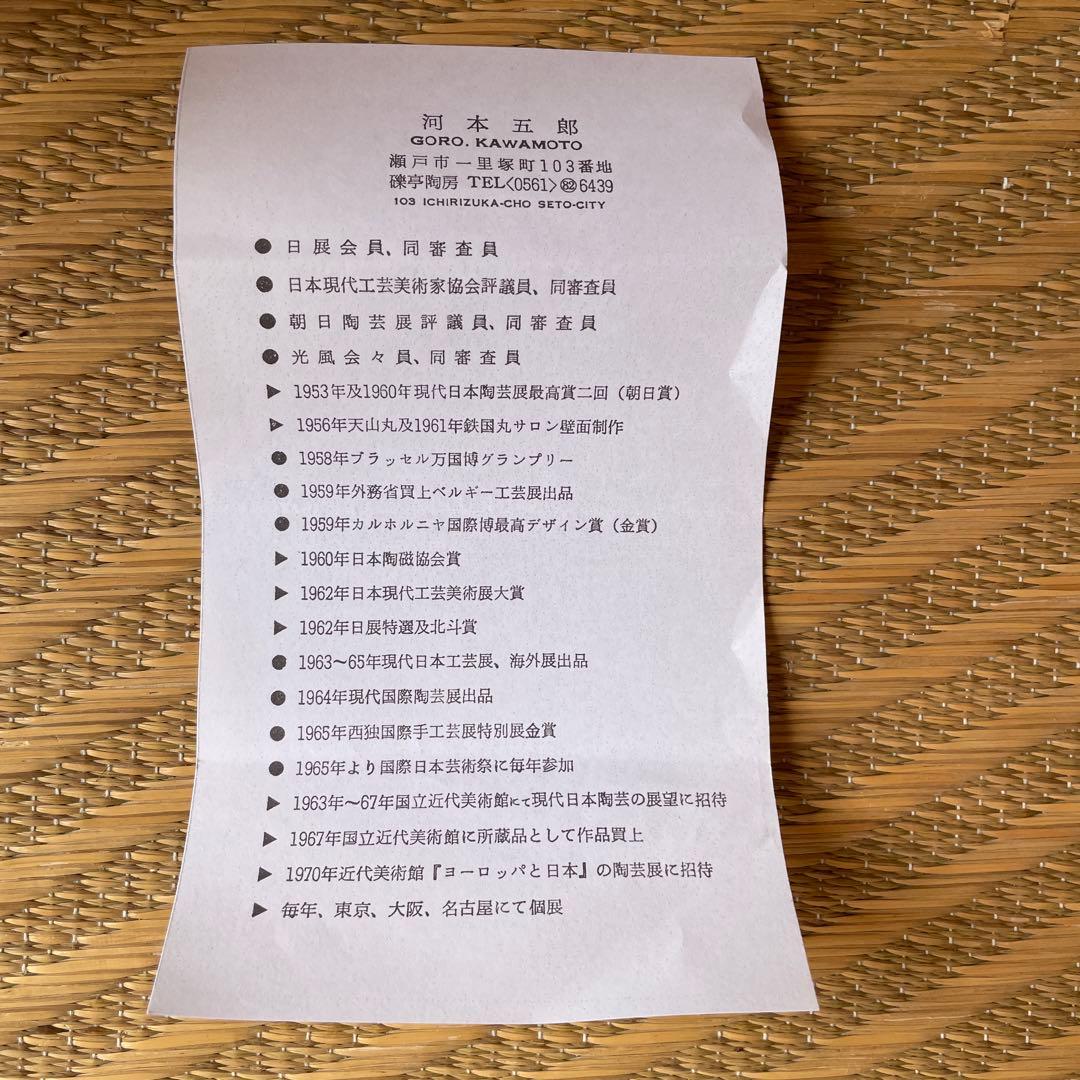 河本五郎
GORO. KAWAMOTO
瀬戸市一里塚町103番地
礫亭陶房 TEL〈0561〉㊷6439
103 ICHIRIZUKA-CHO SETO-CITY
● 日展会員、同審査員
● 日本現代工芸美術家協会評議員、同審査員
● 朝日陶芸展評議員、同審査員
● 光風会々員、同審査員
▶ 1953年及1960年現代日本陶芸展最高賞二回（朝日賞）
▶ 1956年天山丸及1961年鉄国丸サロン壁面制作
● 1958年ブラッセル万国博グランプリー
● 1959年外務省買上ベルギー工芸展出品
● 1959年カルホルニヤ国際博最高デザイン賞（金賞）
▶ 1960年日本陶磁協会賞
▶ 1962年日本現代工芸美術展大賞
▶ 1962年日展特選及北斗賞
● 1963〜65年現代日本工芸展、海外展出品
● 1964年現代国際陶芸展出品
● 1965年西独国際手工芸展特別展金賞
● 1965年より国際日本芸術祭に毎年参加
▶ 1963年〜67年国立近代美術館にて現代日本陶芸の展望に招待
▶ 1967年国立近代美術館に所蔵品として作品買上
▶ 1970年近代美術館『ヨーロッパと日本』の陶芸展に招待
▶ 毎年、東京、大阪、名古屋にて個展